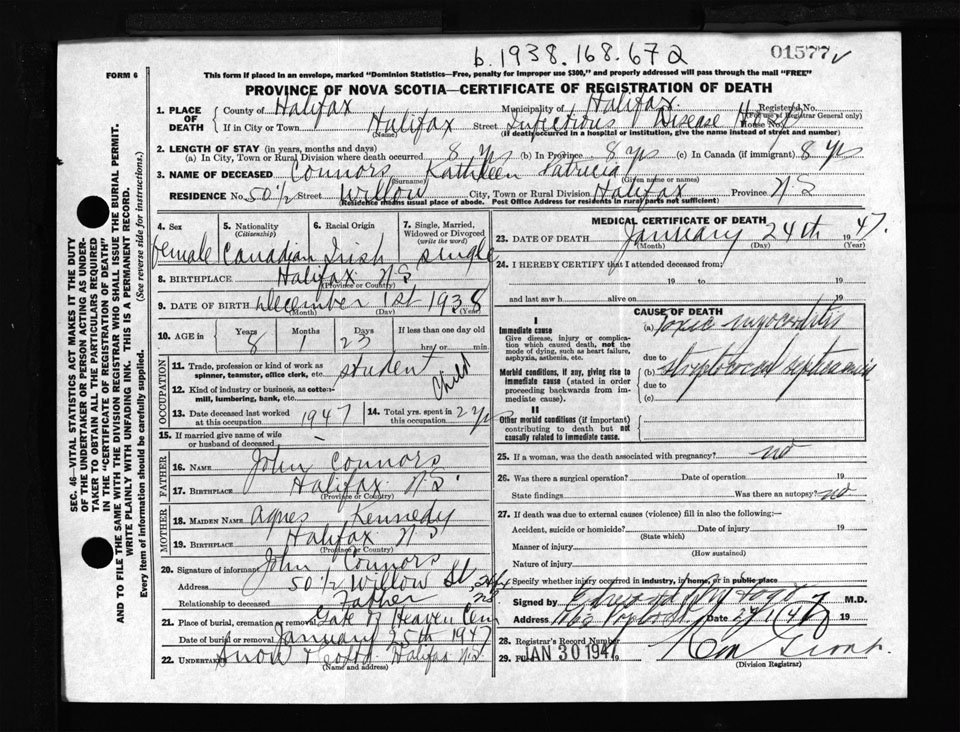 b. 1938.168.672
01577
FORM 6
This form if placed in an envelope, marked "Dominion Statistics—Free, penalty for improper use $300," and properly addressed will pass through the mail "FREE"
PROVINCE OF NOVA SCOTIA—CERTIFICATE OF REGISTRATION OF DEATH
1. PLACE OF DEATH County of Halifax Municipality of Halifax Registered No.
(For use of Registrar General only)
If in City or Town Halifax Street Infectious Disease Hosp House No.
(Name) (If death occurred in a hospital or institution, give the name instead of street and number)
2. LENGTH OF STAY (in years, months and days)
(a) In City, Town or Rural Division where death occurred 8 yrs (b) In Province 8 yrs (c) In Canada (if immigrant) 8 yrs
3. NAME OF DECEASED Connors Kathleen Patricia
(Surname) (Given name or names)
RESIDENCE No 50 1/2 Street Willow City, Town or Rural Division Halifax Province N.S
(Residence means usual place of abode. Post Office Address for residents in rural parts not sufficient)
SEC. 46—VITAL STATISTICS ACT MAKES IT THE DUTY
OF THE UNDERTAKER OR PERSON ACTING AS UNDER-
TAKER TO OBTAIN ALL THE PARTICULARS REQUIRED
IN THE "CERTIFICATE OF REGISTRATION OF DEATH"
AND TO FILE THE SAME WITH THE DIVISION REGISTRAR WHO SHALL ISSUE THE BURIAL PERMIT.
WRITE PLAINLY WITH UNFADING INK. THIS IS A PERMANENT RECORD.
Every item of information should be carefully supplied. (See reverse side for instructions.)
4. Sex 5. Nationality (Citizenship) 6. Racial Origin 7. Single, Married, Widowed or Divorced (write the word)
Female Canadian Irish single
8. BIRTHPLACE Halifax N.S
(Province or Country)
9. DATE OF BIRTH December 1st 1938
(Month) (Day) (Year)
10. AGE in Years Months Days If less than one day old
8 1 23 hrs. or min.
OCCUPATION
11. Trade, profession or kind of work as
spinner, teamster, office clerk, etc. student
12. Kind of industry or business, as cotton-
mill, lumbering, bank, etc. child
13. Date deceased last worked
at this occupation 1947 14. Total yrs. spent in
this occupation 2 yrs
15. If married give name of wife
or husband of deceased
FATHER
16. NAME John Connors
17. BIRTHPLACE Halifax N.S.
(Province or Country)
MOTHER
18. MAIDEN NAME Agnes Kennedy
19. BIRTHPLACE Halifax N.S
(Province or Country)
20. Signature of informant John Connors
Address 50 1/2 Willow St, Hfx N.S.
Relationship to deceased Father
21. Place of burial, cremation or removal Gate of Heaven Cem
Date of burial or removal January 25th 1947
22. UNDERTAKER Snow & Halifax N.S
(Name and address)
MEDICAL CERTIFICATE OF DEATH
23. DATE OF DEATH January 24th 1947.
(Month) (Day) (Year)
24. I HEREBY CERTIFY that I attended deceased from:
19 to 19
and last saw h alive on 19
CAUSE OF DEATH
I
Immediate cause
Give disease, injury or complica-
tion which caused death, not the
mode of dying, such as heart failure,
asphyxia, asthenia, etc.
(a) Toxic myocarditis
due to
Morbid conditions, if any, giving rise to
immediate cause (stated in order
proceeding backwards from im-
mediate cause).
(b) streptococcal septicaemia
due to
(c)
II
Other morbid conditions (if important)
contributing to death but not
causally related to immediate cause.
25. If a woman, was the death associated with pregnancy? no
26. Was there a surgical operation? Date of operation 19
State findings Was there an autopsy? no
27. If death was due to external causes (violence) fill in also the following:—
Accident, suicide or homicide? Date of injury 19
(State which)
Manner of injury
(How sustained)
Nature of injury
Specify whether injury occurred in industry, in home, or in public place
Signed by M.D.
Address Date 19
28. Registrar's Record Number
29. Filed JAN 30 1947 19
(Division Registrar)